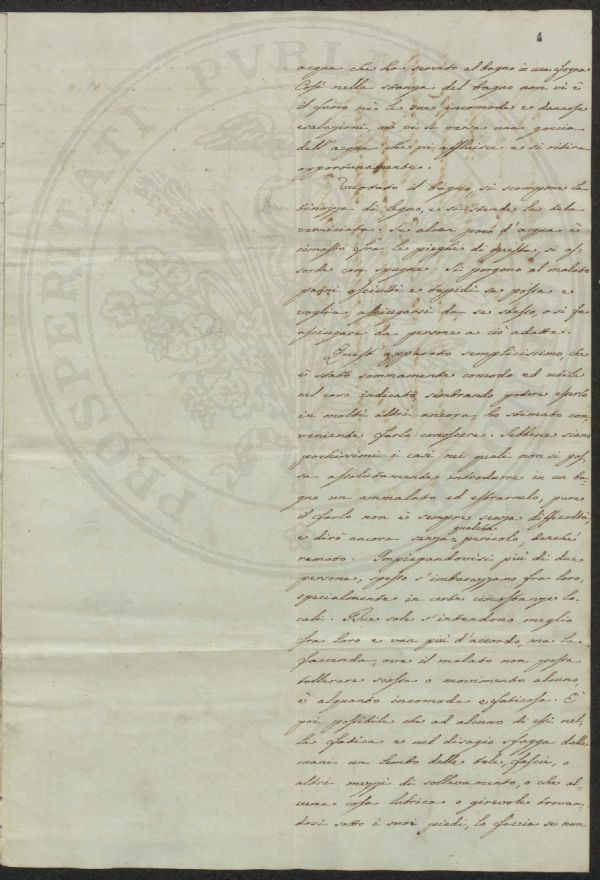 4
acqua che ha servito al bagno in una fogna
Così nella stanza del bagno non vi è
il fuoco nè le sue incomode e dannose
esalazioni, nè vi si versa una goccia
dell'acqua che vi affluisce e si ritira
opportunamente.
Vuotato il bagno, si scompone la
tinozza di legno, e si stende la tela
verniciata. Se alcun poco d'acqua è
rimasto fra le pieghe di questa, si as-
sorbe con spugne. Si porgono al malato
panni asciutti e tepidi se possa e
voglia asciugarsi da se stesso, o si fa
asciugare da persone a ciò adatte.
Quest'apparato semplicissimo che
è stato sommamente comodo ed utile
nel caso indicato, sembrando potere esserlo
in molti altri ancora, ho stimato con-
veniente farlo conoscere. Sebbene siano
pochissimi i casi nei quali non si pos-
sa assolutamente introdurre in un ba-
gno un ammalato ed estrarnelo, pure
il farlo non è sempre senza difficoltà,
e dirò ancora senza qualche pericolo, benchè
remoto. Impiegandovisi più di due
persone, spesso s'imbarazzano fra loro,
specialmente in certe circostanze lo-
cali. Due sole s'intendono meglio
fra loro e van più d'accordo, ma la
faccenda, ove il malato non possa
tollerare scossa o movimento alcuno,
è alquanto incomoda e faticosa. È
poi possibile che ad alcuno di essi nel-
la fatica e nel disagio sfugga dalle
mani un lembo delle tele, fascie, o
altri mezzi di sollevamento, o che al-
cuna cosa lubrica o girevole trovan-
dosi sotto i suoi piedi, lo faccia se non
PROSPERITATI PUBLICAE